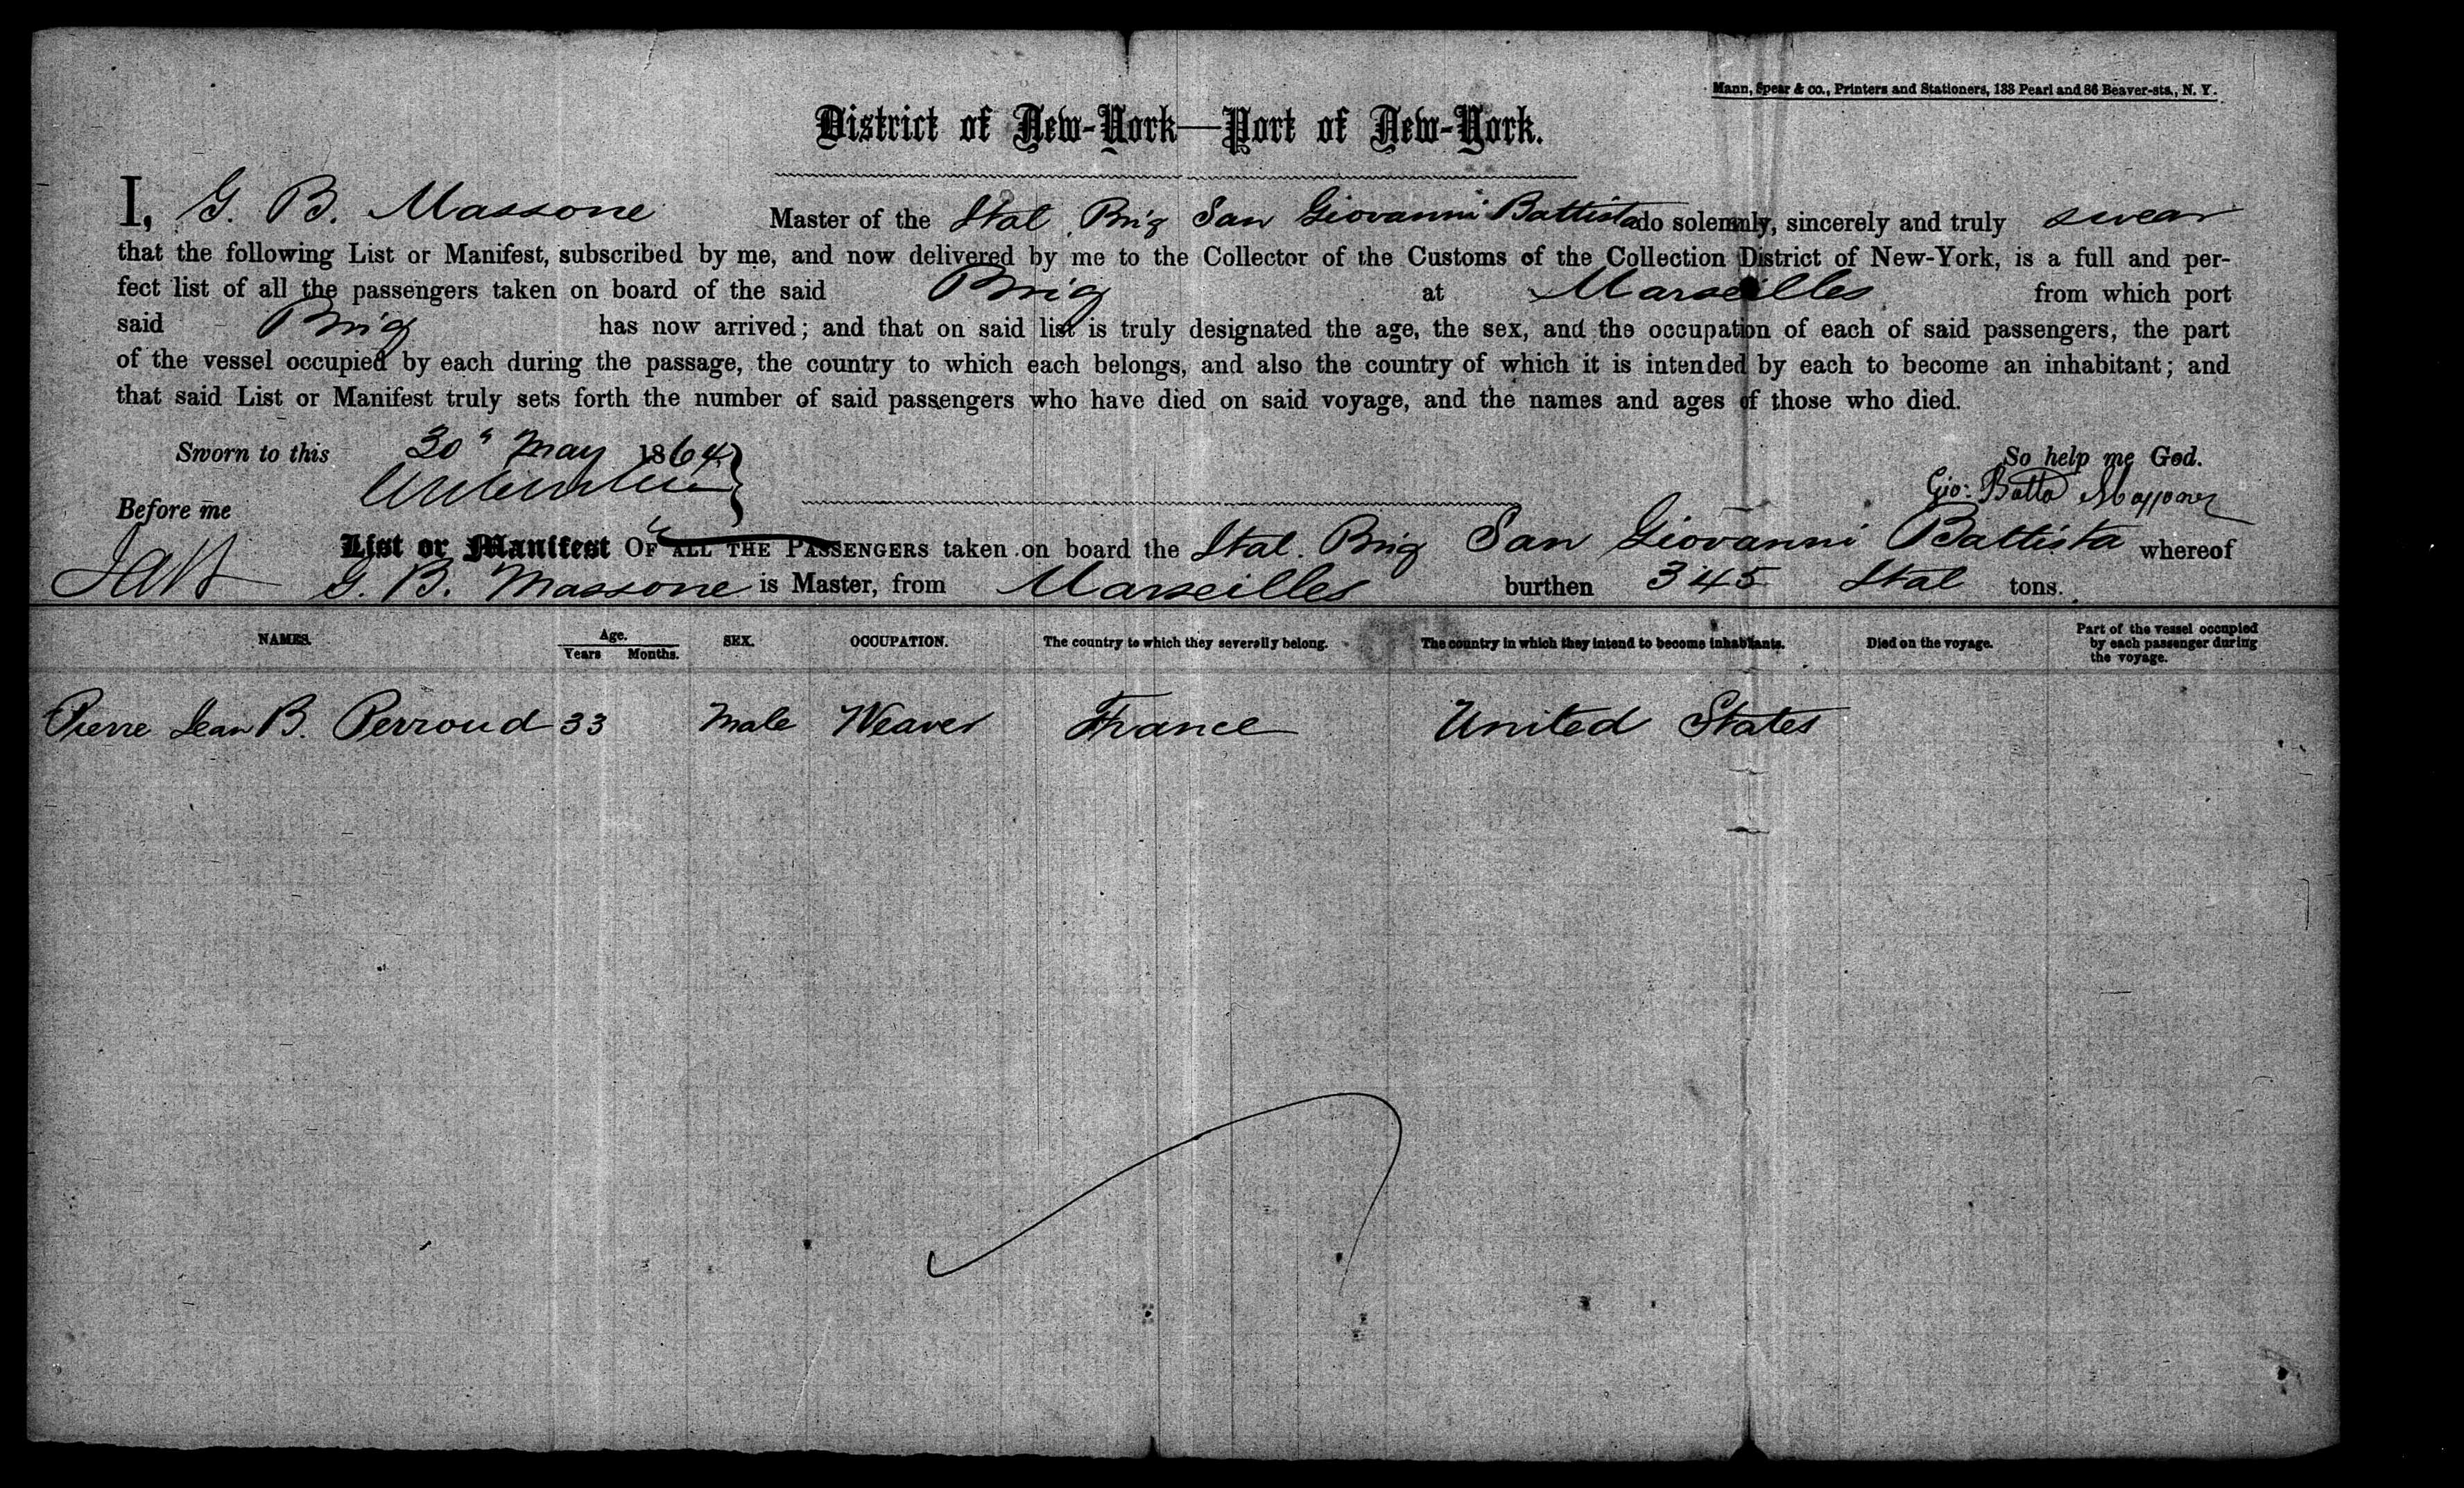 Mann, Spear & co., Printers and Stationers, 133 Pearl and 86 Beaver-sts., N. Y.
District of New-York—Port of New-York.
I, G. B. Massone Master of the Ital. Brig San Giovanni Battista do solemnly, sincerely and truly swear
that the following List or Manifest, subscribed by me, and now delivered by me to the Collector of the Customs of the Collection District of New-York, is a full and per-
fect list of all the passengers taken on board of the said Brig at Marseilles from which port
said Brig has now arrived; and that on said list is truly designated the age, the sex, and the occupation of each of said passengers, the part
of the vessel occupied by each during the passage, the country to which each belongs, and also the country of which it is intended by each to become an inhabitant; and
that said List or Manifest truly sets forth the number of said passengers who have died on said voyage, and the names and ages of those who died.
Sworn to this 30" May 1864 So help me God.
Before me Gio: Batta Massone
List or Manifest OF ALL THE PASSENGERS taken on board the Ital. Brig San Giovanni Battista whereof
G. B. Massone is Master, from Marseilles burthen 345 Ital tons.
NAMES. Age. Years Months. SEX. OCCUPATION. The country to which they severally belong. The country in which they intend to become inhabitants. Died on the voyage. Part of the vessel occupied by each passenger during the voyage.
Pierre Jean B. Perroud 33 Male Weaver France United States